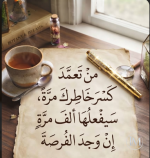 مَنْ تَعمَّدَ
كَسْرَ خَاطِركَ مَرَّةً،
سَيفْعلُهَا ألفَ مَرَّةٍ
إِنْ وَجدَ الفُرصَةَ